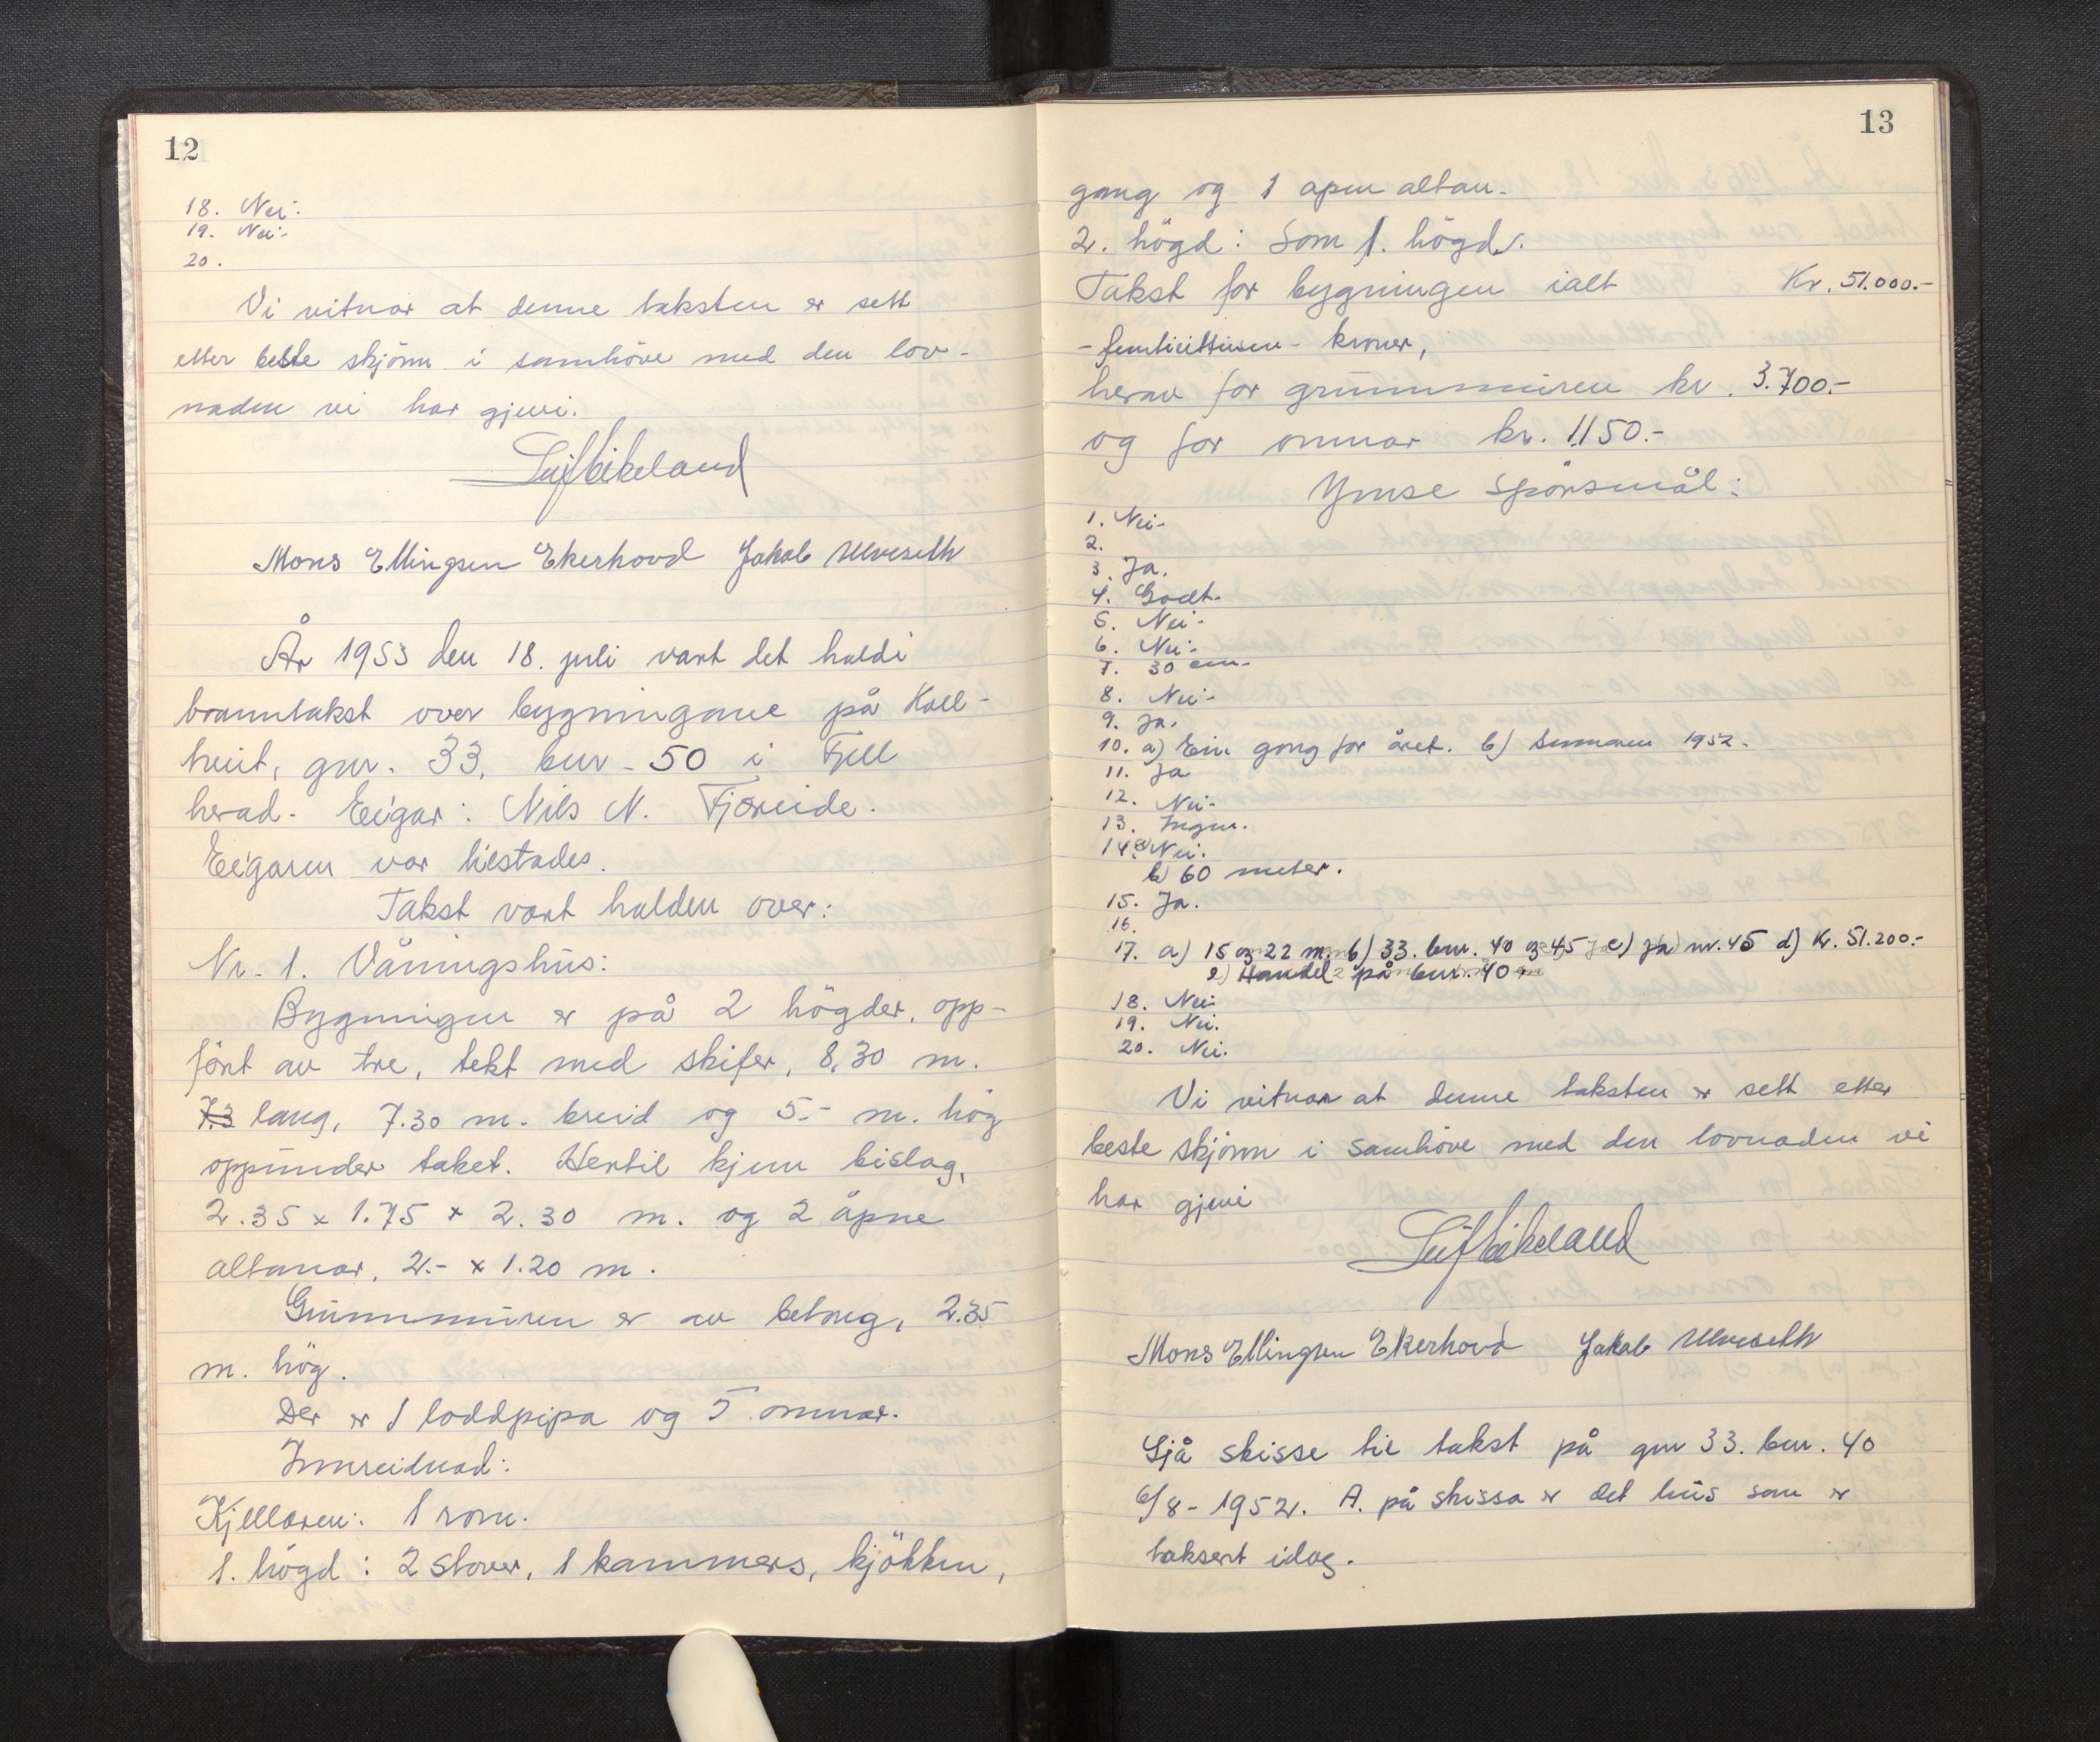 12
18. Nei.
19. Nei.
20.
Vi vitnar at denne taksten er sett
etter beste skjönn i samhöve med den lov-
naden vi har gjevi.
Leif Eikeland
Mons Ellingsen Ekerhovd Jakob Ulveseth
År 1953 den 18. juli vart det haldi
branntakst over bygningane på Koll-
tveit, gnr. 33, bnr. 50 i Fjell
herad. Eigar: Nils N. Fjæreide.
Eigaren var tilstades.
Takst vart halden over:
Nr. 1. Våningshus:
Bygningen er på 2 högder, opp-
fört av tre, tekt med skifer, 8,30 m.
7.3 lang, 7.30 m. breid og 5.- m. hög
oppunder taket. Hertil kjem bislag,
2.35 x 1.75 x 2.30 m. og 2 åpne
altanar, 2.- x 1.20 m.
Grunnmuren er av betong, 2.35
m. hög.
Der er 1 loddpipa og 5 omnar.
Innreidnad:
Kjellaren: 1 rom.
1. högd: 2 stover, 1 kammers, kjökken,
13
gang og 1 apen altan.
2. högd: Som 1. högd.
Takst for bygningen ialt Kr. 51.000.-
- femtieittusen - kroner,
herav for grunnmuren kr. 3.700.-
og for omnar kr. 1150.-
Ymse spörsmål:
1. Nei.
2.
3. Ja.
4. Godt.
5. Nei.
6. Nei.
7. 30 cm.
8. Nei.
9. Ja.
10. a) Ein gong for året. b) Sumaren 1952.
11. Ja
12. Nei.
13. Ingen.
14. a) Nei.
b) 60 meter.
15. Ja.
16.
17. a) 15 og 22 m. b) 33. bnr. 40 og 45 c) Ja nr. 45 d) Kr. 51.200.-
e) Handel på bnr. 40
18. Nei
19. Nei.
20. Nei.
Vi vitnar at denne taksten er sett etter
beste skjönn i samhöve med den lovnaden vi
har gjevi
Leif Eikeland
Mons Ellingsen Ekerhovd Jakob Ulveseth
Sjå skisse til takst på gnr 33. bnr. 40
6/8 - 1952. A. på skissa er det hus som er
taksert idag.